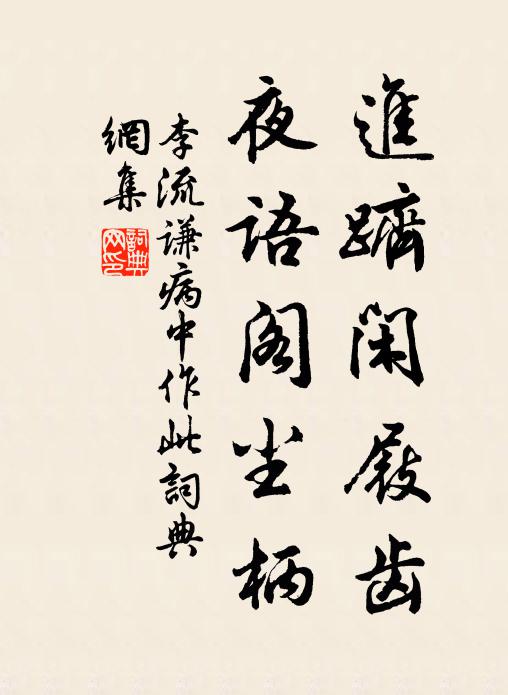 進躋閑屐齿
夜語阁尘柄
李流谦病中作此詞典
網集
詞典網印